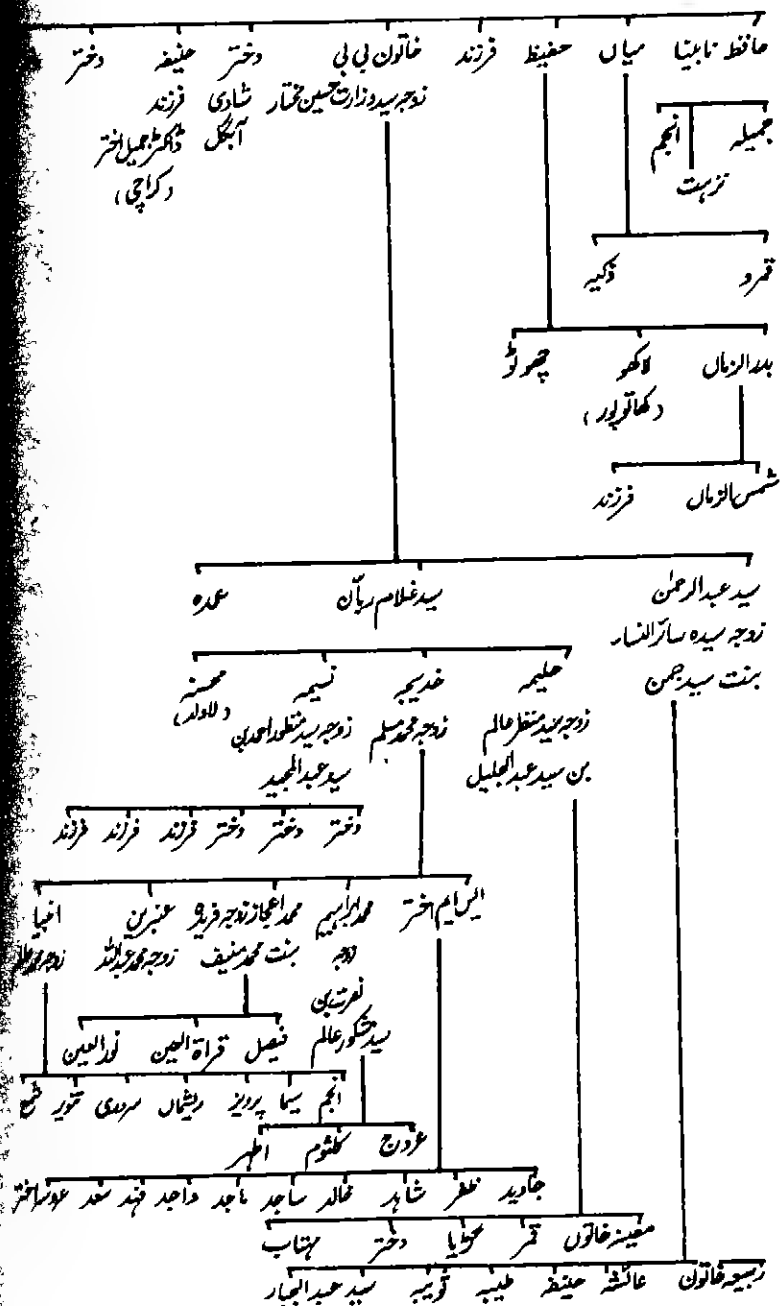 حافظ نابینا میاں حفیظ فرزند خاتون بی بی دختر حنیفہ دختر
زوجہ سید وزارت حسین مختار شادی فرزند
آبگل ڈاکٹر جمیل اختر
(کراچی)
جمیلہ انجم
نزہت
قمرو ذکیہ
بدرالزماں لاکھو چھوٹو
شمس الزماں فرزند
سید عبدالرحمٰن سید غلام ربانی عمدہ
زوجہ سیدہ سائرالنساء
بنت سید جمن
حلیمہ خدیجہ نسیمہ محسنہ
(لاولد)
زوجہ سید منظر عالم زوجہ محمد مسلم زوجہ سید منظور احمد بن
بن سید عبدالجلیل سید عبدالمجید
دختر دختر دختر فرزند فرزند فرزند
ایس ایم اختر محمد ابراہیم محمد اعجاز زوجہ فریدہ عنبرین
زوجہ بنت محمد منیف زوجہ محمد عبداللہ
سید شکور عالم
فیصل قراۃ العین نورالعین
انجم سیما پرویز ریشماں سرمدی تنویر شمع
عروج کلثوم اطہر
جاوید ظفر شاہد خالد ساجد ماجد واجد فہد سعد
معینہ خاتون قمر دختر مہتاب
ربیعہ خاتون عائشہ حنیفہ طیبہ ثوبیہ سید عبدالجبار